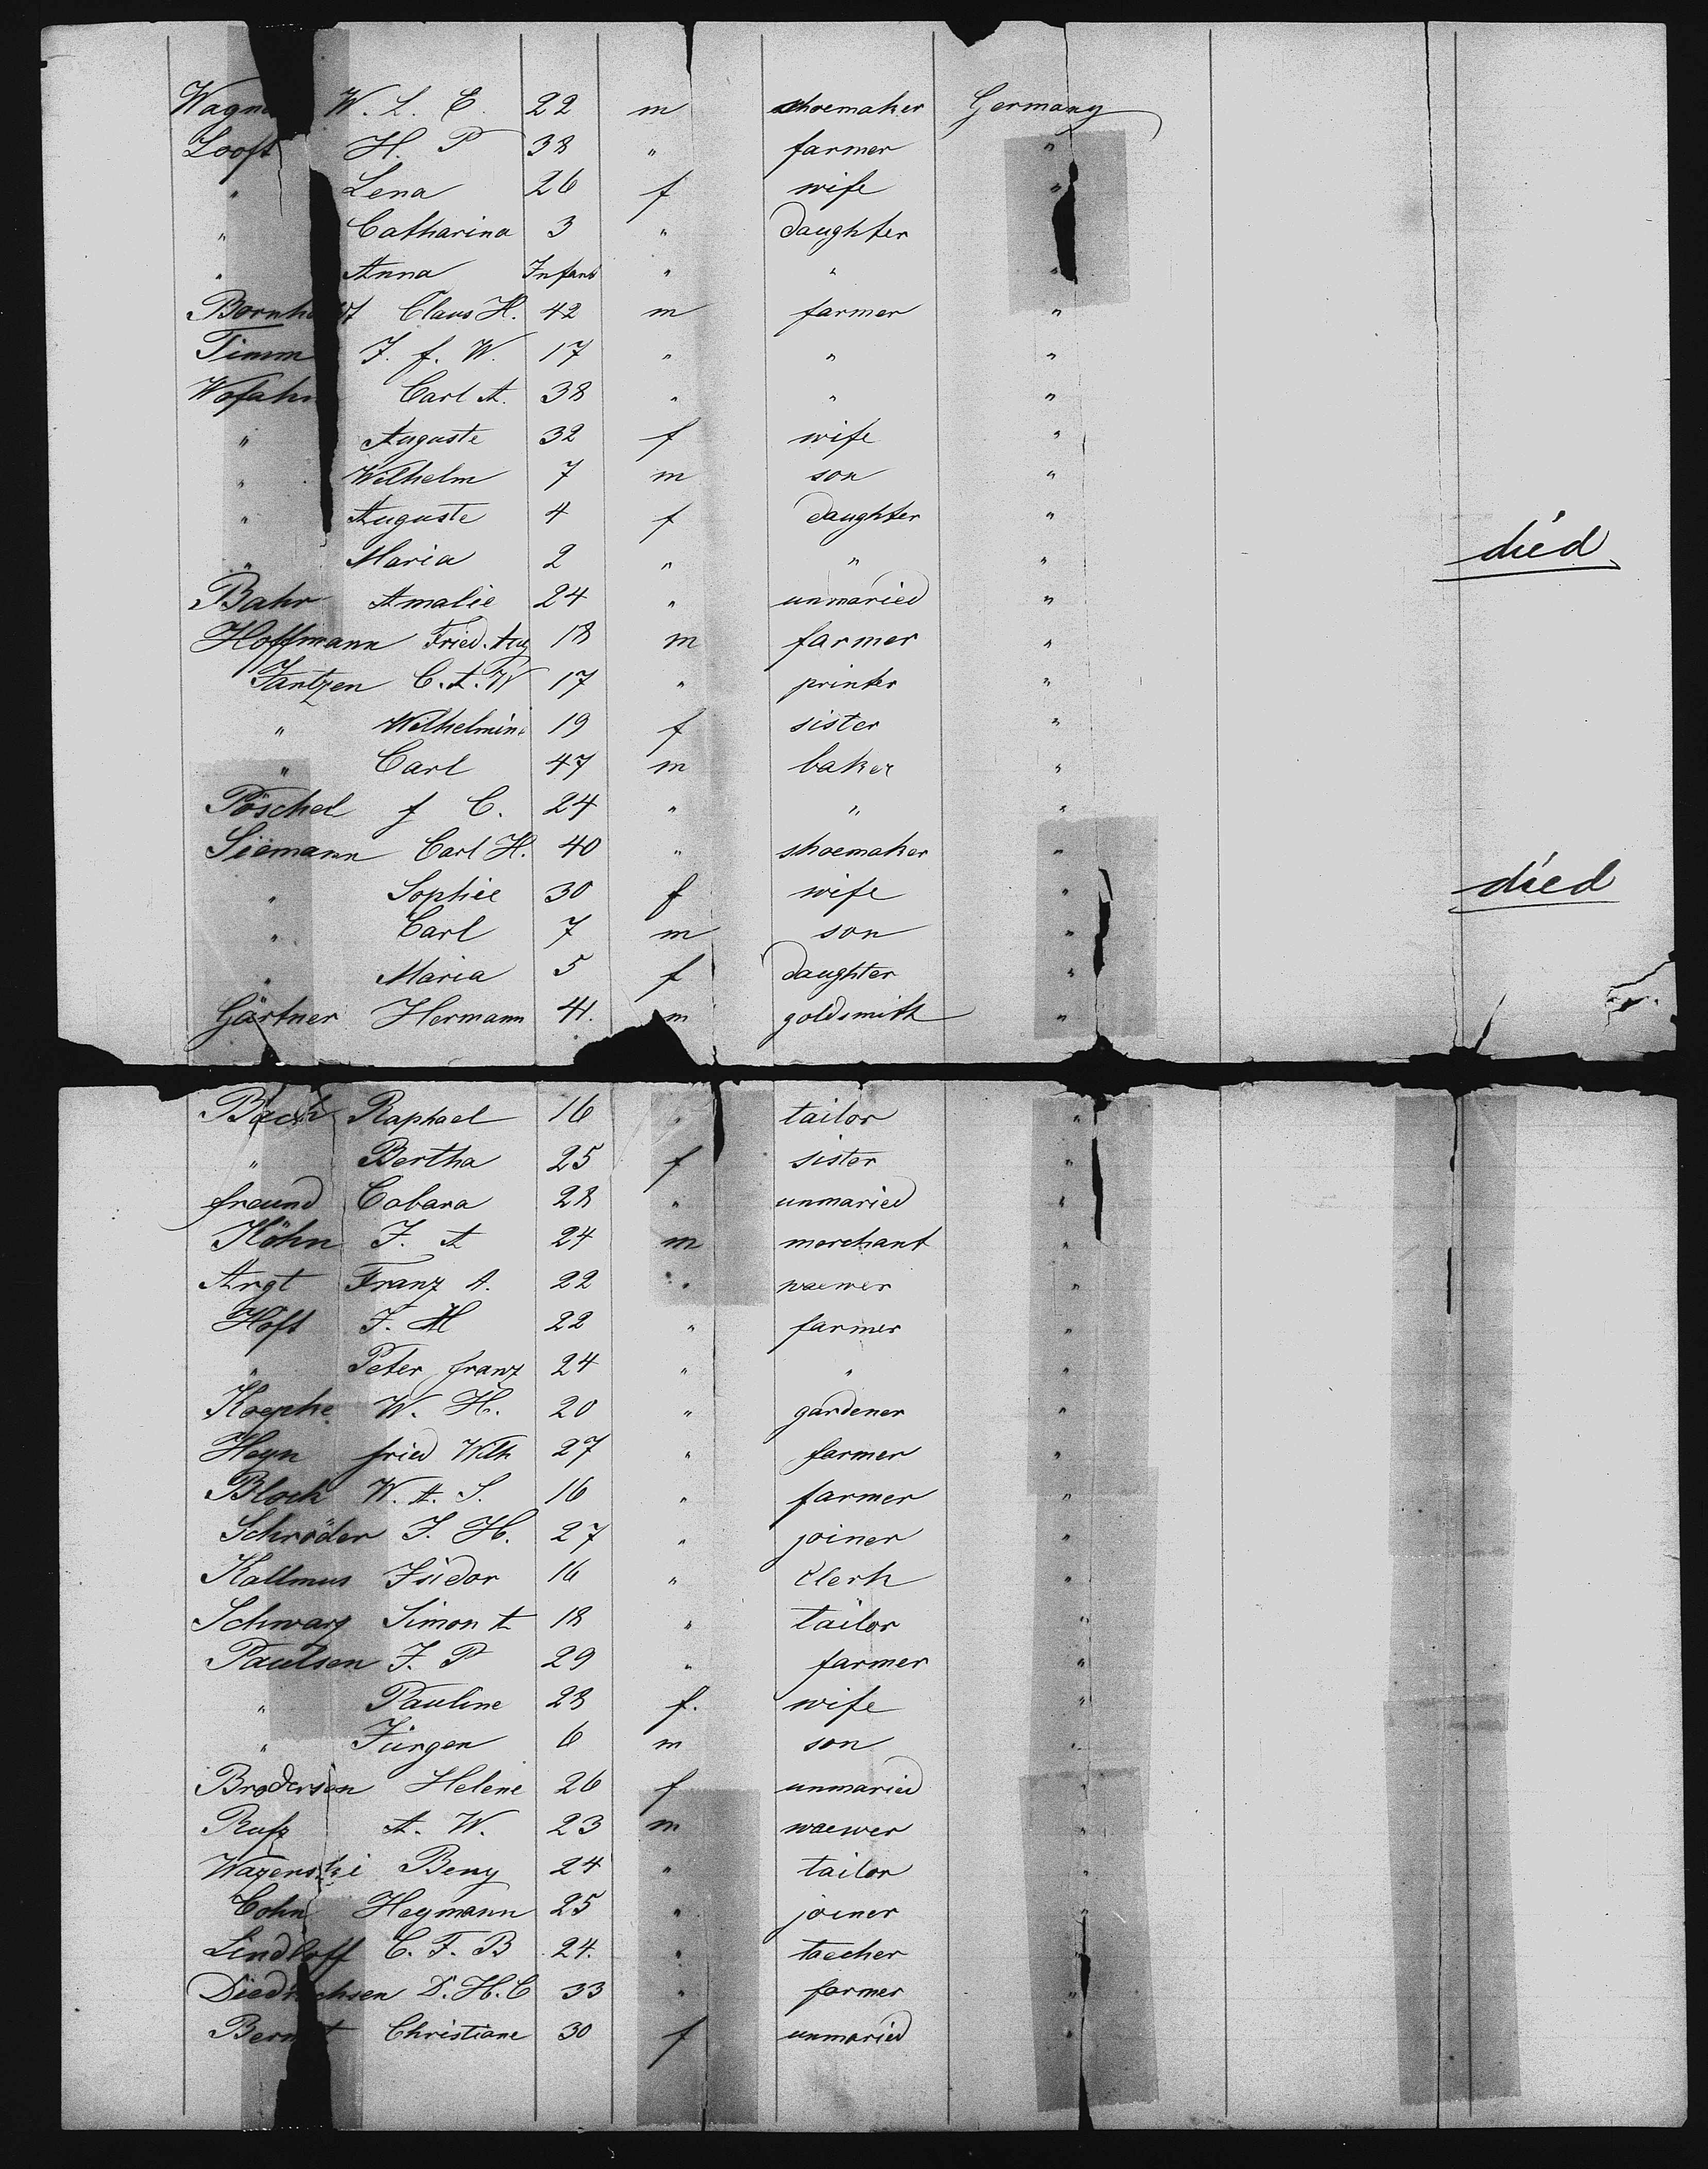 Wagn W. L. E. 22 m shoemaker Germany
Looft H. P 38 " farmer "
" Lena 26 f wife "
" Catharina 3 " daughter
" Anna Infant " " "
Bornho dt Claus H. 42 m farmer "
Timm J. f. W. 17 " " "
Wofahn Carl A. 38 " " "
" Auguste 32 f wife "
" Wilhelm 7 m son "
" Auguste 4 f daughter "
" Maria 2 " " " died
Bahr Amalie 24 " unmaried "
Hoffmann Fried. Aug 18 m farmer "
Jantzen C. A. W 17 " printer "
" Wilhelmine 19 f sister "
" Carl 47 m baker "
Pöschel f C. 24 " " "
Siemann Carl H. 40 " shoemaker "
" Sophie 30 f wife " died
" Carl 7 m son "
" Maria 5 f daughter "
Gärtner Hermann 41. m goldsmith "
Bach Raphael 16 " tailor "
" Bertha 25 f sister "
freund Cabara 28 " unmaried "
Köhn J. A 24 m merchant "
Argt Franz A. 22 " waewer "
Höft J. M 22 " farmer "
" Peter franz 24 " " "
Koephe W. H. 20 " gardener "
Heyn fried Wilh 27 " farmer "
Bloch W. A. S. 16 " farmer "
Schröder J. H. 27 " joiner "
Kallmus Isidor 16 " Clerk "
Schwarz Simon A 18 " tailor "
Paulsen J. P 29 " farmer "
" Pauline 28 f. wife "
" Jürgen 6 m son "
Brodersen Helene 26 f unmaried "
Rufz A. W. 23 m waewer "
Wazenski Beny 24 " tailor "
Cohn Heymann 25 " joiner "
Lindloff C. F. B 24. " taecher "
Diedrichsen D. H. C 33 " farmer "
Bern t Christiane 30 f unmaried "